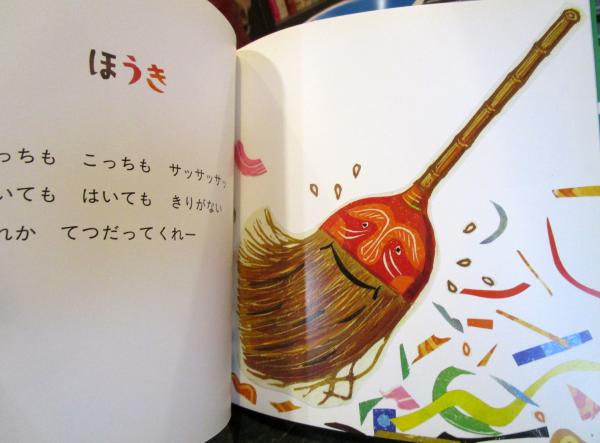 ほうき
っちも こっちも サッサッサッ
いても はいても きりがない
れか てつだってくれー